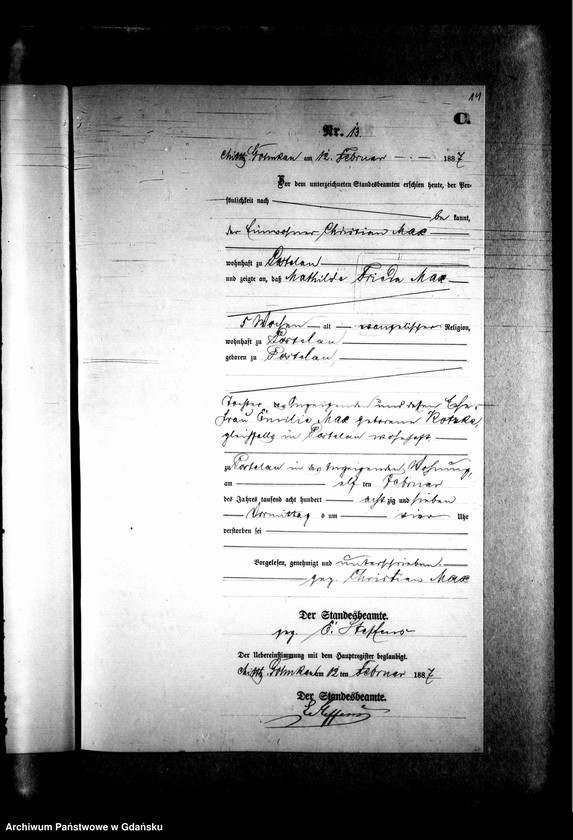 14
C.
Nr. 13.
am 12. Februar 1887
Vor dem unterzeichneten Standesbeamten erschien heute, der Per-
sönlichkeit nach
be kannt,
der Einwohner Christian Max
wohnhaft zu Postelau
und zeigte an, daß Mathilde Frieda Max
5 Wochen alt evangelischer Religion,
wohnhaft zu Postelau
geboren zu Postelau,
Tochter des Anzeigenden und dessen Ehe-
frau Emilie Max geborene
gleichfalls in Postelau wohnhaft
zu Postelau in des Anzeigenden Wohnung,
am elf ten Februar
des Jahres tausend acht hundert acht zig und sieben
Vormittag s um vier Uhr
verstorben sei
Vorgelesen, genehmigt und unterschrieben.
gez. Christian Max
Der Standesbeamte.
gez. E. Steffens
Der Uebereinstimmung mit dem Hauptregister beglaubigt.
am 12 ten Februar 1887
Der Standesbeamte.
E. Steffens
Archiwum Państwowe w Gdańsku